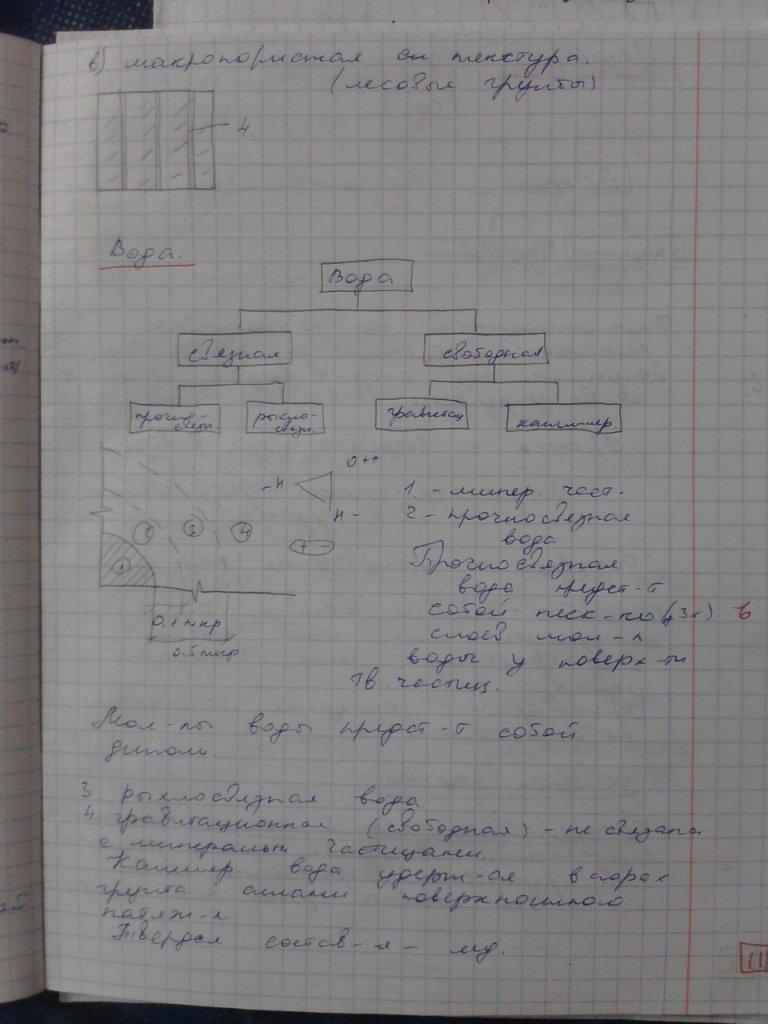 в) макропористая текстура.
(лесовые грунты)
4.
Вода.
Вода
связная
свободная
прочно-
связн.
рыхло-
связн.
гравитац
капилляр
O++
-H
H-
1. - минер. част.
2 - прочносвязная
вода
1
3
4
+ -
Прочносвязная
вода предст-т
собой неск-ко (3x) в
слоев мол-л
воды у поверх-ти
тв. частиц.
0,1 мкр
0.5 мкр
Мол-лы воды предст-т собой
диполи.
3. рыхлосвязная вода
4. гравитационная (свободная) - не связана
с минеральн. частицами.
Капилляр. вода удерж-ся в порах
грунта силами поверхностного
натяж-я
Твердая состав-я - лёд.
11